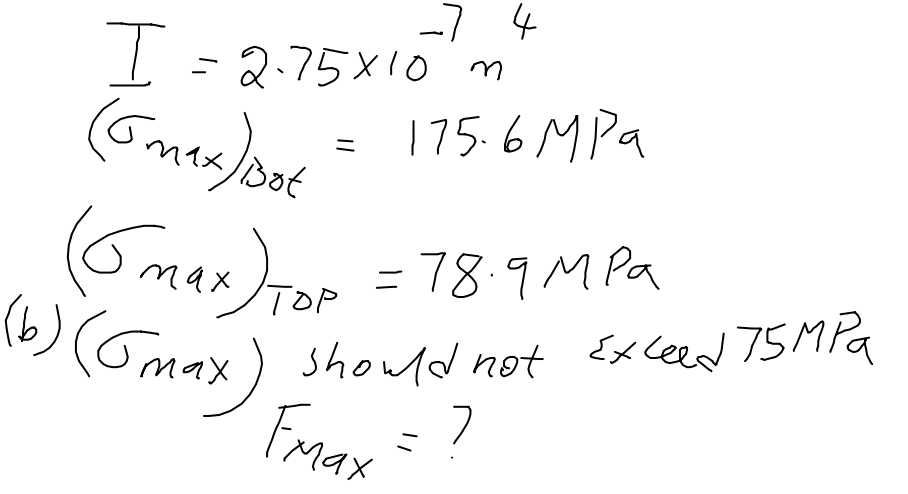 I = 2.75×10⁻⁷ m⁴
(σmax)Bot = 175.6 MPa
(σmax)TOP = 78.9 MPa
(b) (σmax) should not Exceed 75MPa
FMax = ?